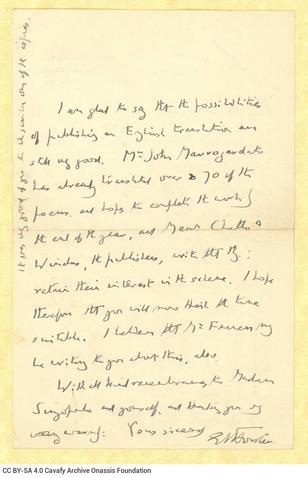 I am glad to say tht the possibilities
of publishing an English translation are
still very good. Mr John Mavrogordato
has already translated over 70 of the
poems, and hopes to complete the work by
the end of the year, and Messrs Chatto &
Windus, the publishers, write tht they
retain their interest in the scheme. I hope
therefore tht you will now think the time
suitable. I believe tht Mr Furness may
be writing to you about this, also.
With all kind remembrances to Madam
Singopoulo and yourself, and thanking you very
very warmly: Yours sincerely
EMForster
It was very good of you to design in one of the copies.
CC BY-SA 4.0 Cavafy Archive Onassis Foundation